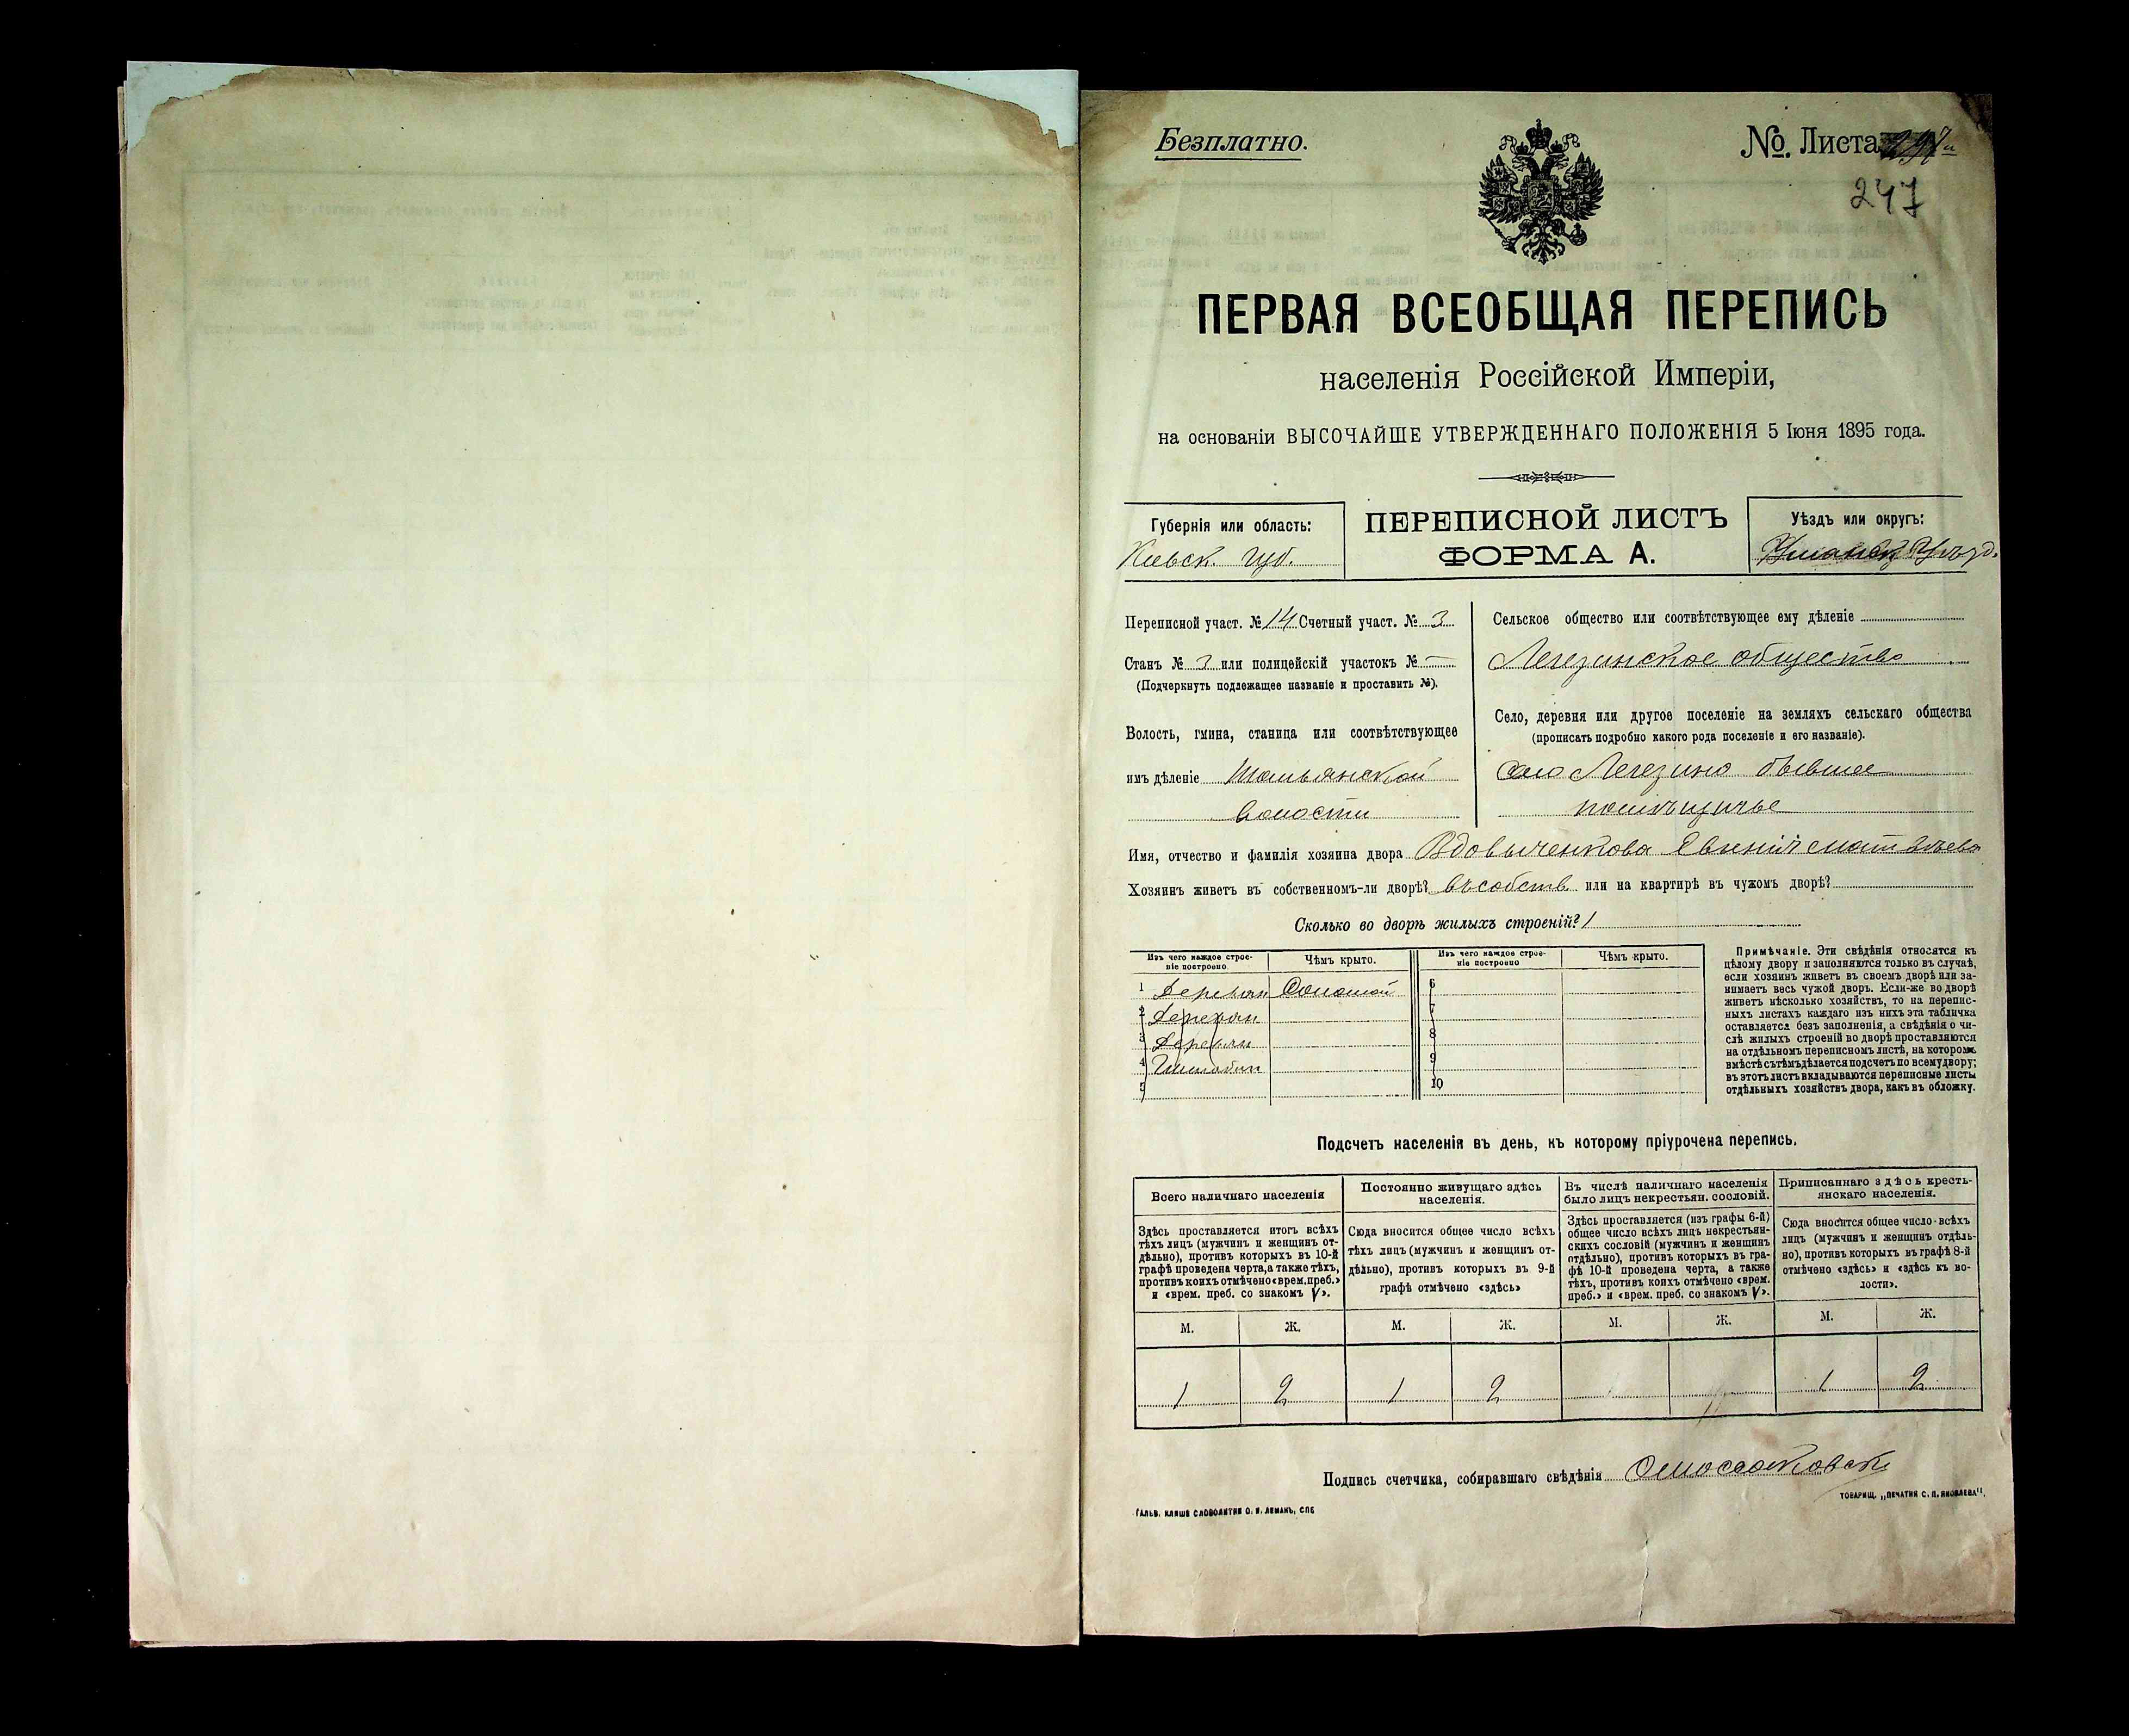 Безплатно.
No. Листа
247
ПЕРВАЯ ВСЕОБЩАЯ ПЕРЕПИСЬ
населенія Россійской Имперіи,
на основаніи ВЫСОЧАЙШЕ УТВЕРЖДЕННАГО ПОЛОЖЕНІЯ 5 Іюня 1895 года.
Губернія или область:
Киевск. Губ.
ПЕРЕПИСНОЙ ЛИСТЪ
ФОРМА А.
Уѣздъ или округъ:
Уманск Уѣзд.
Переписной участ. № 14 Счетный участ. № 3
Станъ № 3 или полицейскій участокъ № —
(Подчеркнуть подлежащее названіе и проставить №).
Волость, гмина, станица или соотвѣтствующее
имъ дѣленіе
волости
Сельское общество или соотвѣтствующее ему дѣленіе
Легезинское общество
Село, деревня или другое поселеніе на земляхъ сельскаго общества
(прописать подробно какого рода поселеніе и его названіе).
село Легезино бывшее
помѣщичье
Имя, отчество и фамилія хозяина двора Вдовыченкова
Хозяинъ живетъ въ собственномъ-ли дворѣ? въ собств или на квартирѣ въ чужомъ дворѣ?
Сколько во дворѣ жилыхъ строеній? 1
Изъ чего каждое строе-
ніе построено
Чѣмъ крыто.
Изъ чего каждое строе-
ніе построено
Чѣмъ крыто.
1 Деревян Соломой 6
2 Деревян 7
3 Деревян 8
4 9
5 10
Примѣчаніе. Эти свѣдѣнія относятся къ
цѣлому двору и заполняются только въ случаѣ,
если хозяинъ живетъ въ своемъ дворѣ или за-
нимаетъ весь чужой дворъ. Если-же во дворѣ
живетъ нѣсколько хозяйствъ, то на перепис-
ныхъ листахъ каждаго изъ нихъ эта табличка
оставляется безъ заполненія, а свѣдѣнія о чи-
слѣ жилыхъ строеній во дворѣ проставляются
на отдѣльномъ переписномъ листѣ, на которомъ
вмѣстѣ съ тѣмъ дѣлается подсчетъ по всему двору;
въ этотъ листъ вкладываются переписные листы
отдѣльныхъ хозяйствъ двора, какъ въ обложку.
Подсчетъ населенія въ день, къ которому пріурочена перепись.
Всего наличнаго населенія
Здѣсь проставляется итогъ всѣхъ
тѣхъ лицъ (мужчинъ и женщинъ от-
дѣльно), противъ которыхъ въ 10-й
графѣ проведена черта, а также тѣхъ,
противъ коихъ отмѣчено «врем. преб.»
и «врем. преб. со знакомъ V».
Постоянно живущаго здѣсь
населенія.
Сюда вносится общее число всѣхъ
тѣхъ лицъ (мужчинъ и женщинъ от-
дѣльно), противъ которыхъ въ 9-й
графѣ отмѣчено «здѣсь»
Въ числѣ наличнаго населенія
было лицъ некрестьян. сословій.
Здѣсь проставляется (изъ графы 6-й)
общее число всѣхъ лицъ некрестьян-
скихъ сословій (мужчинъ и женщинъ
отдѣльно), противъ которыхъ въ гра-
фѣ 10-й проведена черта, а также
тѣхъ, противъ коихъ отмѣчено «врем.
преб.» и «врем. преб. со знакомъ V».
Приписаннаго здѣсь кресть-
янскаго населенія.
Сюда вносится общее число всѣхъ
лицъ (мужчинъ и женщинъ отдѣль-
но), противъ которыхъ въ графѣ 8-й
отмѣчено «здѣсь» и «здѣсь къ во-
лости».
М. Ж. М. Ж. М. Ж. М. Ж.
1 2 1 2 1 2
Подпись счетчика, собиравшаго свѣдѣнія
ГАЛЬВ. КЛИШЕ СЛОВОЛИТНИ О. И. ЛЕМАНЪ, СПБ
ТОВАРИЩ. „ПЕЧАТНЯ С. П. ЯКОВЛЕВА".